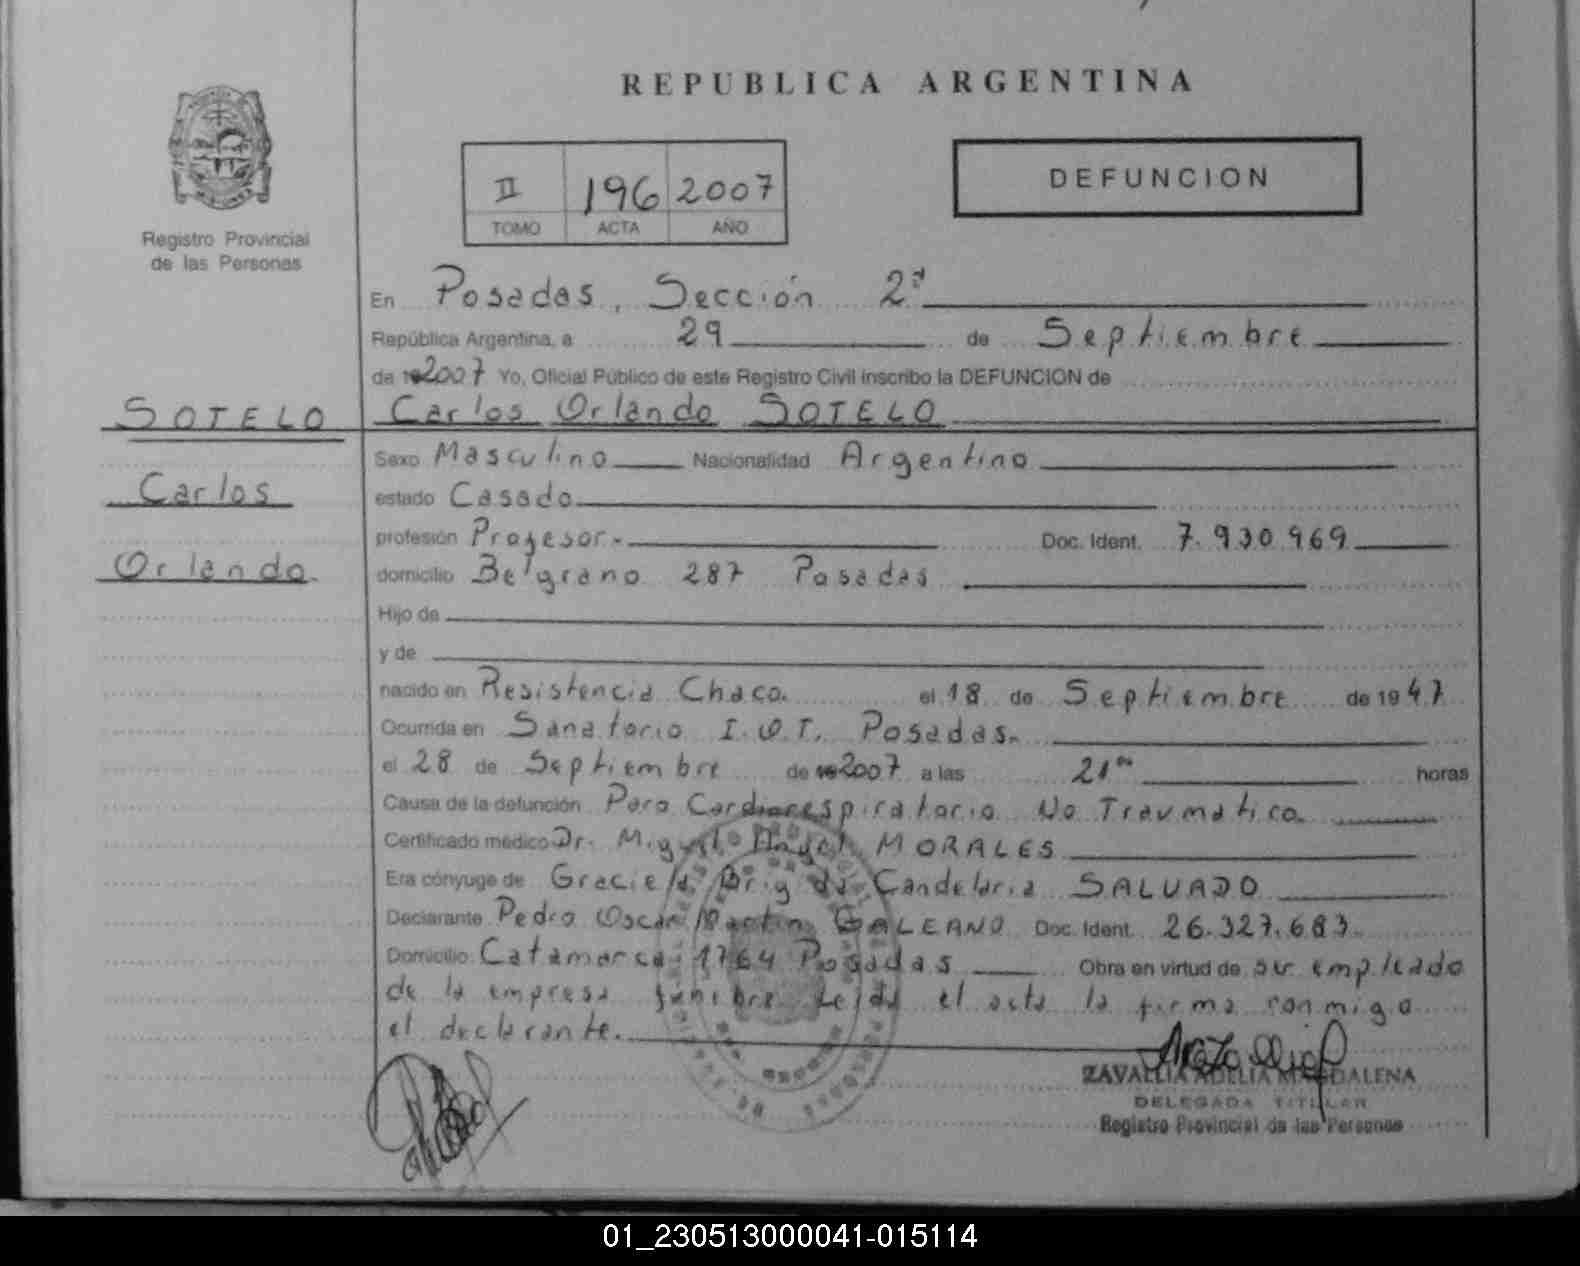 REPUBLICA ARGENTINA
Registro Provincial
de las Personas
II 196 2007
TOMO ACTA AÑO
DEFUNCION
SOTELO
Carlos
Orlando
En Posadas, Sección 2ª
República Argentina, a 29 de Septiembre
de 2007 Yo, Oficial Público de este Registro Civil inscribo la DEFUNCION de
Carlos Orlando SOTELO
Sexo Masculino Nacionalidad Argentino
estado Casado
profesión Profesor.- Doc. Ident. 7.930.969
domicilio Belgrano 287 Posadas
Hijo de
y de
nacido en Resistencia Chaco. el 18 de Septiembre de 1947
Ocurrida en Sanatorio I.O.T. Posadas.
el 28 de Septiembre de 2007 a las 21 horas
Causa de la defunción Paro Cardiorespiratorio No Traumatico.
Certificado médico Dr. Miguel Angel MORALES
Era cónyuge de Graciela de Candelaria SALVADO
Declarante Pedro Oscar Martin GALEANO Doc. Ident. 26.327.683
Domicilio Catamarca 1764 Posadas Obra en virtud de ser empleado
de la empresa funebre Leida el acta la firma conmigo
el declarante.
ZAVALLIA ADELIA MAGDALENA
DELEGADA TITULAR
Registro Provincial de las Personas
01_230513000041-015114